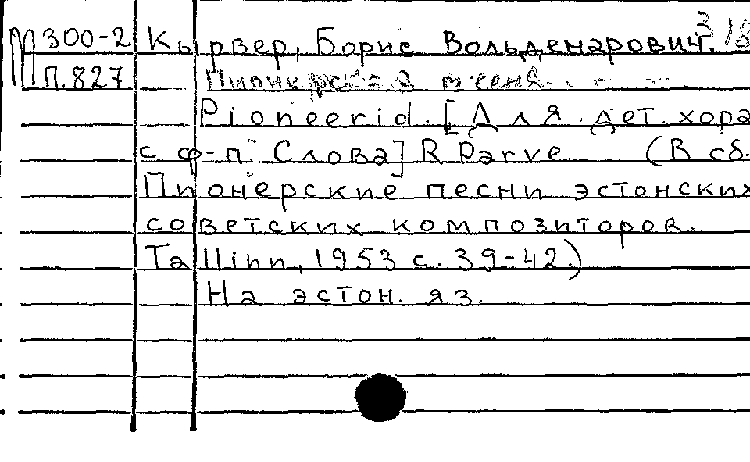 М 300-2 Кырвер, Борис Вольдемарович.
П.827 Пионерская песня.
Pioneerid. [Для дет. хора
с ф-п. Слова] R Parve (В сб.
Пионерские песни эстонских
советских композиторов.
Tallinn, 1953 с. 39-42.)
На эстон. яз.